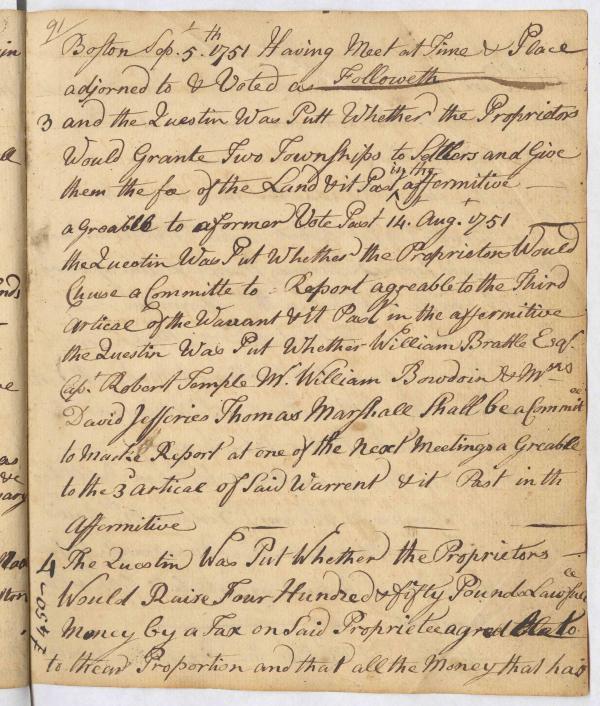 91
Boston Sep.t 5.th 1751 Having Meet at Time & Place
adjorned to & Voted as Followeth
3 and the Questin Was Putt Whether the Proprietors
Would Grante Two Townships to Settlers and Give
them the fee of the Land & it Past in the affermitive
agreable to aformer Vote Past 14. Aug.t 1751
the Questin Was Put Whether the Proprietors Would
Chuse a Committe to = Report agreable to the Third
Artical of the Warrant & it Past in the affermitive
the Questin Was Put Whether William Brattle Esq.r
Cap.t Robert Temple Mr. William Bowdoin & Mrs
David Jefferies Thomas Marshall Shall be a Committee
to Make Report at one of the Next Meetings a Greable
to the 3d artical of Said Warrent & it Past in th
Affermitive
4 The Questin Was Put Whether the Proprietors
Would Raise Four Hundred & fifty Pounds Lawfull
£450
Money by a Tax on Said Proprietee agreable to
to their Proportion and that all the Money that has